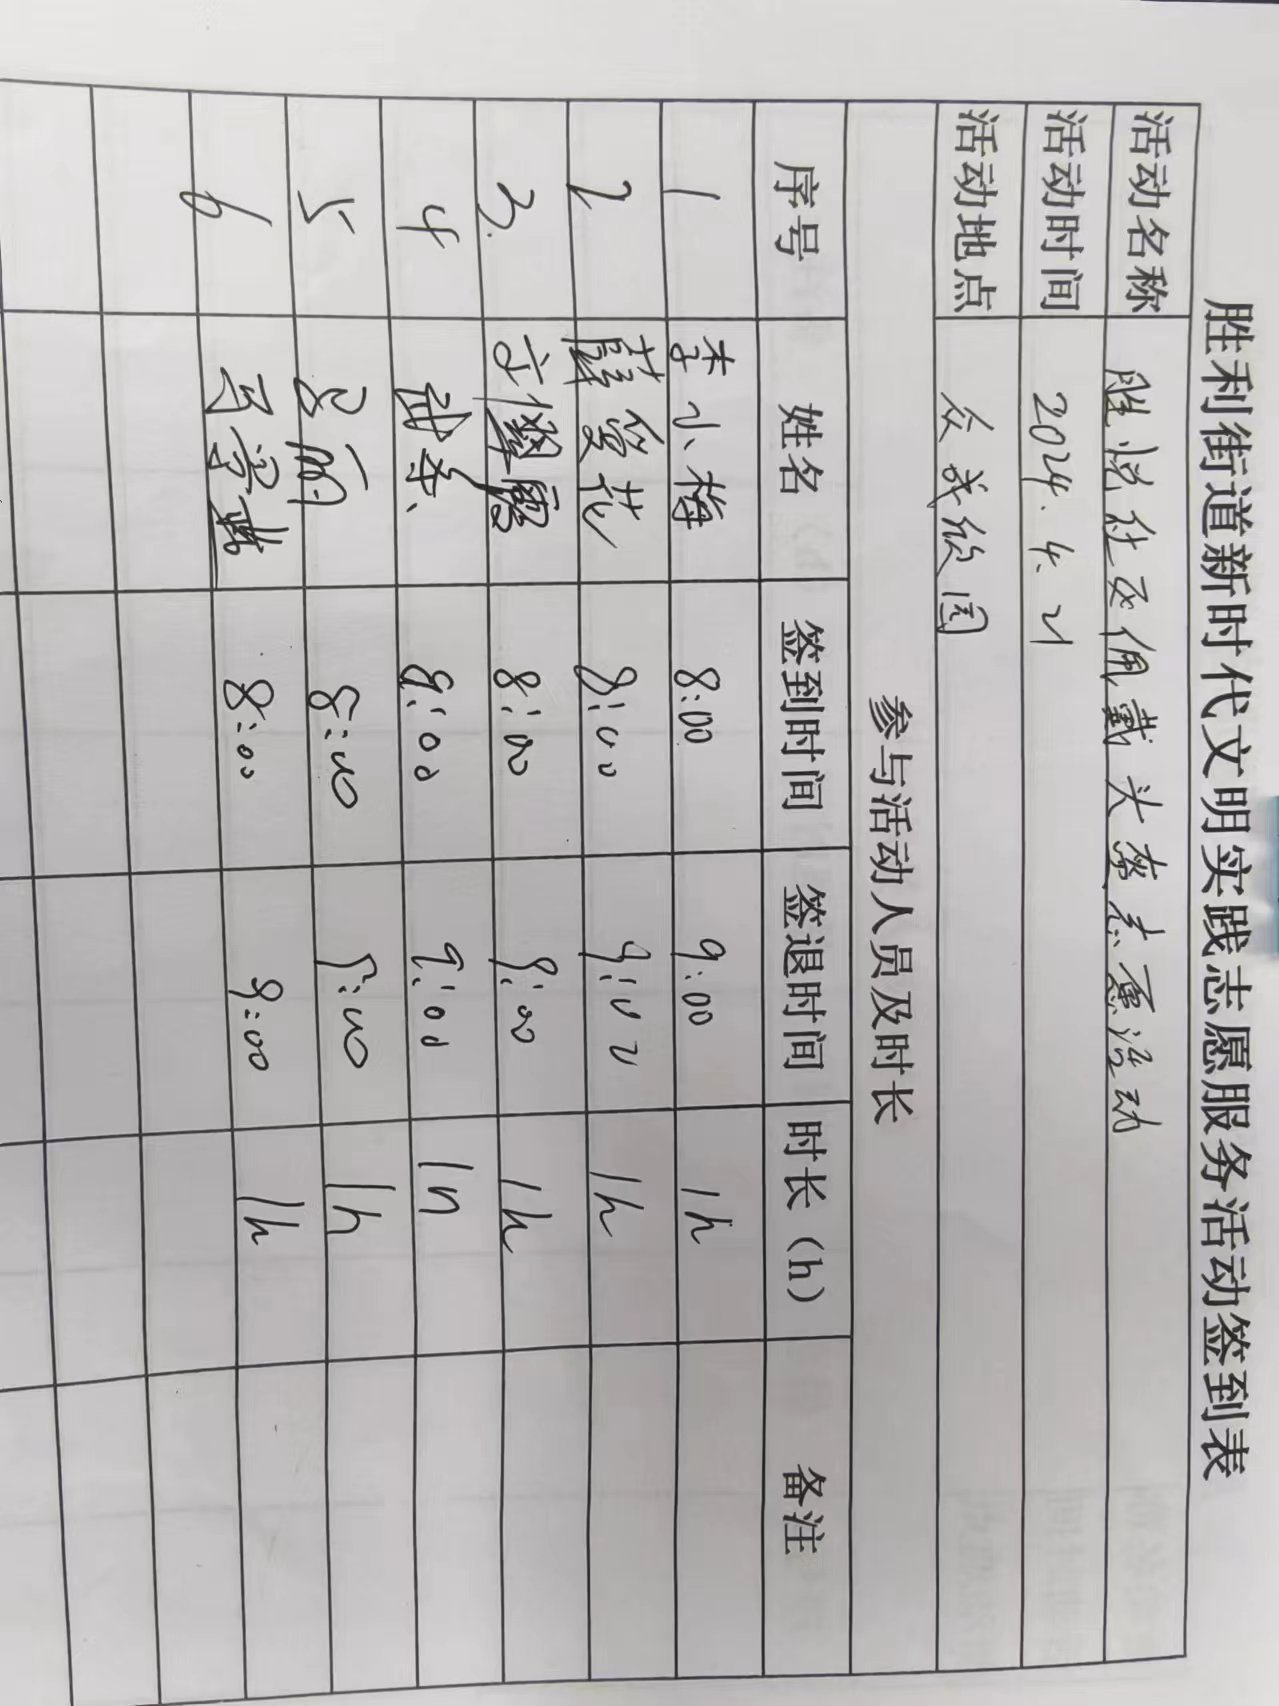 胜利街道新时代文明实践志愿服务活动签到表
活动名称 胜悦社区佩戴头盔志愿活动
活动时间 2024.4.21
活动地点 众成欣园
参与活动人员及时长
序号 姓名 签到时间 签退时间 时长（h） 备注
1 李小梅 8:00 9:00 1h
2 薛爱花 8:00 9:00 1h
3. 8:00 9:00 1h
4 8:00 9:00 1h
5 8:00 9:00 1h
6 8:00 9:00 1h